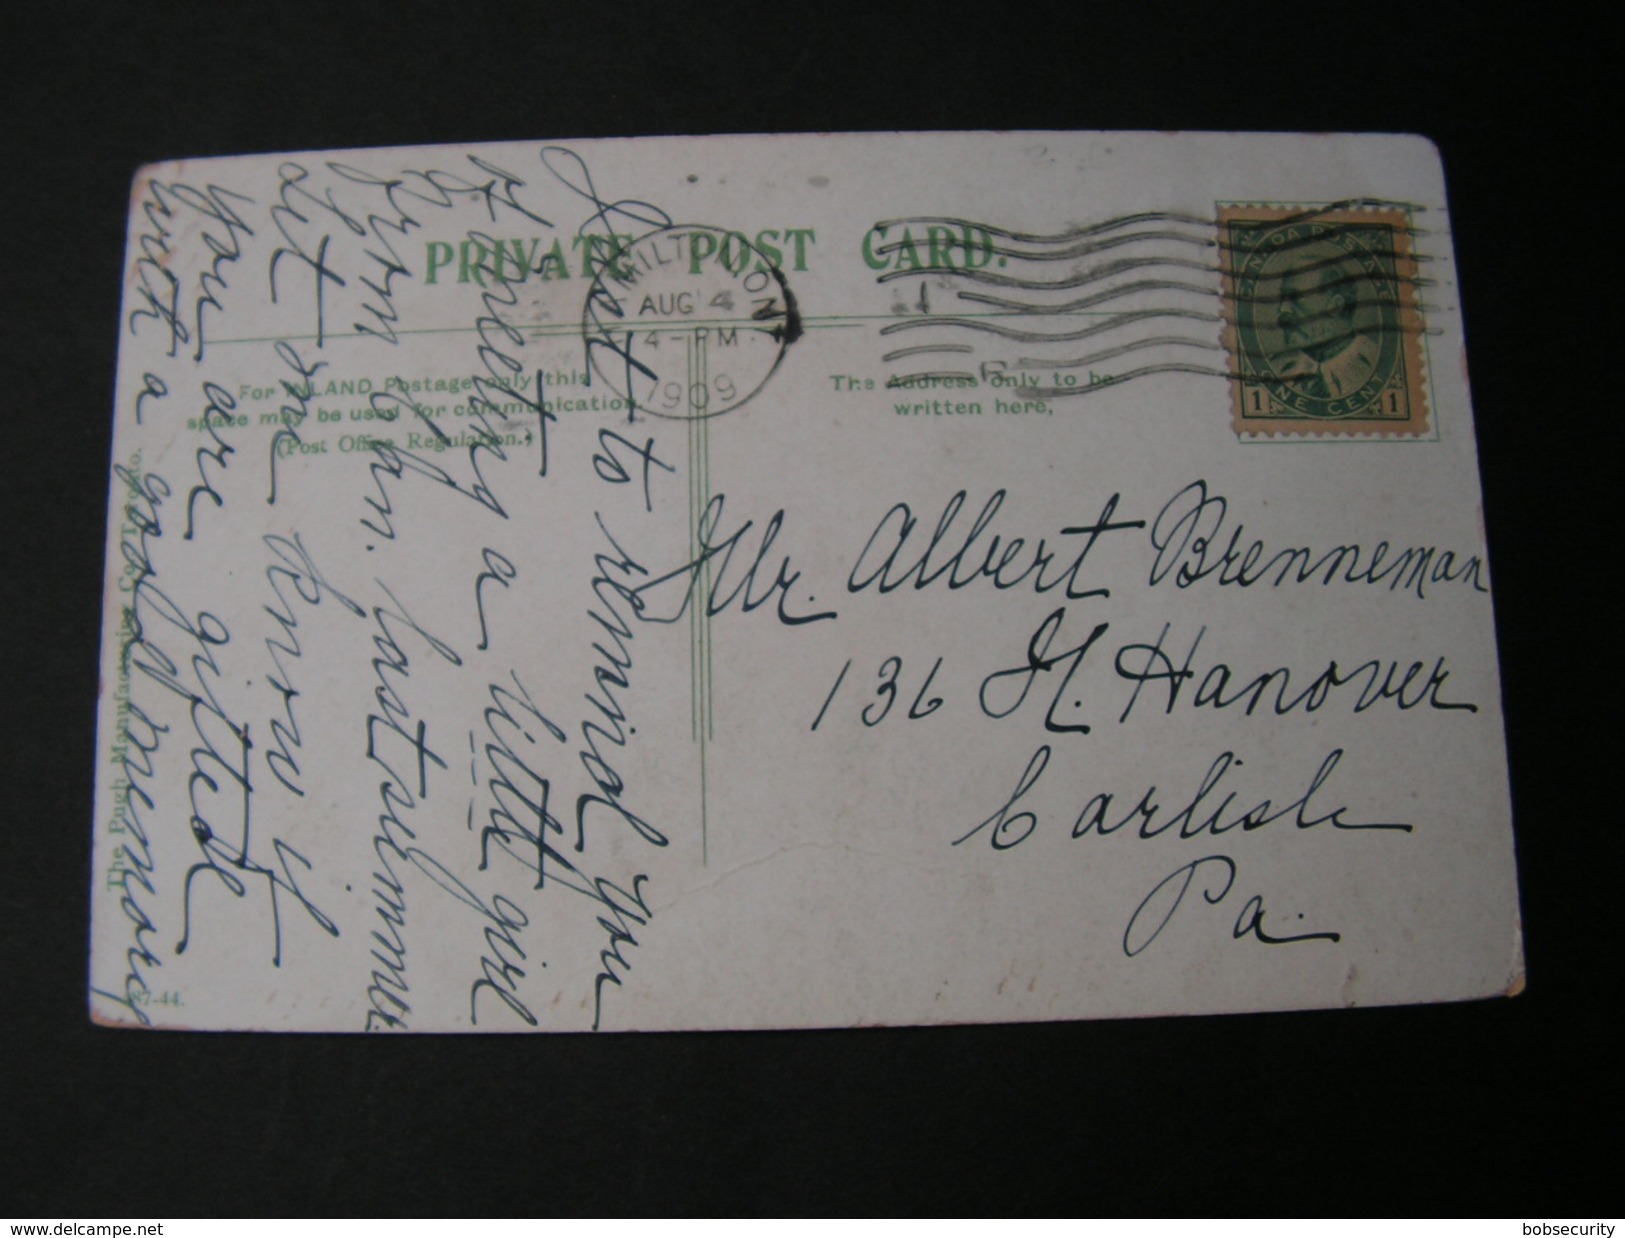 PRIVATE POST CARD.
HAMILTON ONT
AUG 4
4-PM
1909
CANADA POSTAGE
1 ONE CENT 1
For INLAND Postage only this
space may be used for communication
(Post Office Regulation.)
The Address only to be
written here,
Mr. Albert Brenneman
136 N. Hanover
Carlisle
Pa.
Just to remind you
of meeting a little girl
from last summer.
Let me know if
you are gifted
with a good memory
The Pugh Manufacturing Co. Toronto.
87-44.
www.delcampe.net
bobsecurity